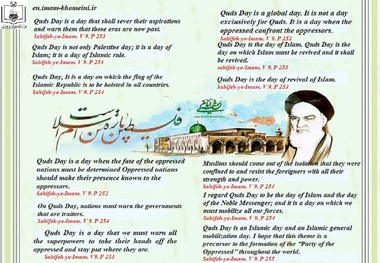 en.imam-khomeini.ir
Quds Day is a day that shall sever their aspirations
and warn them that those eras are now past.
Sahifeh-ye-Imam. V 9. P 253
Quds Day is not only Palestine day; it is a day of
Islam; it is a day of Islamic rule.
Sahifeh-ye-Imam. V 9. P 254
Quds Day, It is a day on which the flag of the
Islamic Republic is to be hoisted in all countries.
Sahifeh-ye-Imam. V 9. P 254
Quds Day is a global day. It is not a day
exclusively for Quds. It is a day when the
oppressed confront the oppressors.
Sahifeh-ye-Imam. V 9. P 252
Quds Day is the day of Islam. Quds Day is the
day on which Islam must be revived and it shall
be revived.
Sahifeh-ye-Imam. V 9. P 253
Quds Day is the day of revival of Islam.
Sahifeh-ye-Imam. V 9. P 253
Quds Day is a day when the fate of the oppressed
nations must be determined Oppressed nations
should make their presence known to the
oppressors.
Sahifeh-ye-Imam. V 9. P 252
On Quds Day, nations must warn the governments
that are traitors.
Sahifeh-ye-Imam. V 9. P 254
Quds Day is a day that we must warn all
the superpowers to take their hands off the
oppressed and stay put where they are.
Sahifeh-ye-Imam. V 9. P 253
Muslims should come out of the isolation that they were
confined to and resist the foreigners with all their
strength and power.
Sahifeh-ye-Imam. V 9. P 254
I regard Quds Day to be the day of Islam and the day of
the Noble Messenger; and it is a day on which we must
mobilize all our forces.
Sahifeh-ye-Imam. V 9. P 254
Quds Day is an Islamic day and an Islamic general
mobilization day. I hope that this theme is a
precursor to the formation of the "Party of the
Oppressed" throughout the world.
Sahifeh-ye-Imam. V 9. P 255